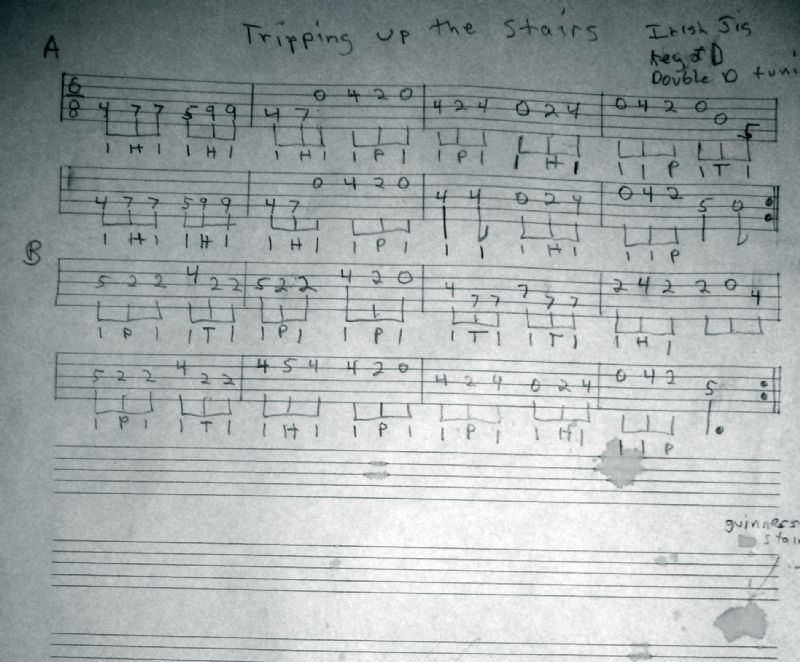 Tripping up the Stairs
Irish Jig
Key of D
Double D tuni
A
6/8 4 7 7 5 9 9 4 7 0 4 2 0 4 2 4 0 2 4 0 4 2 0 0 5
I H I I H I I H I I P I I P I I H I I I P I T I
4 7 7 5 9 9 4 7 0 4 2 0 4 4 0 2 4 0 4 2 5 0
I H I I H I I H I I P I I I I H I I I P
B
5 2 2 4 2 2 5 2 2 4 2 0 4 7 7 7 7 7 2 4 2 2 0 4
I P I I T I I P I I P I I T I I T I I H I
5 2 2 4 2 2 4 5 4 4 2 0 4 2 4 0 2 4 0 4 2 5
I P I I T I I H I I P I I P I I H I I I P
guinness
stain